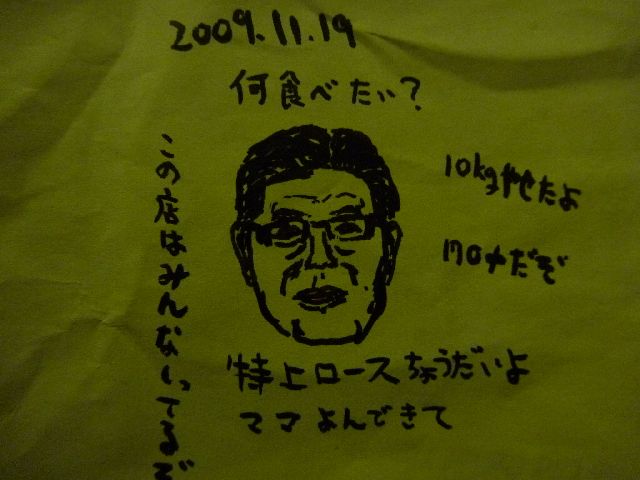 2009.11.19
何食べたい?
10kgやせたよ
170中だぞ
特上ロースちょうだいよ
ママよんできて
この店はみんなしってるぞ